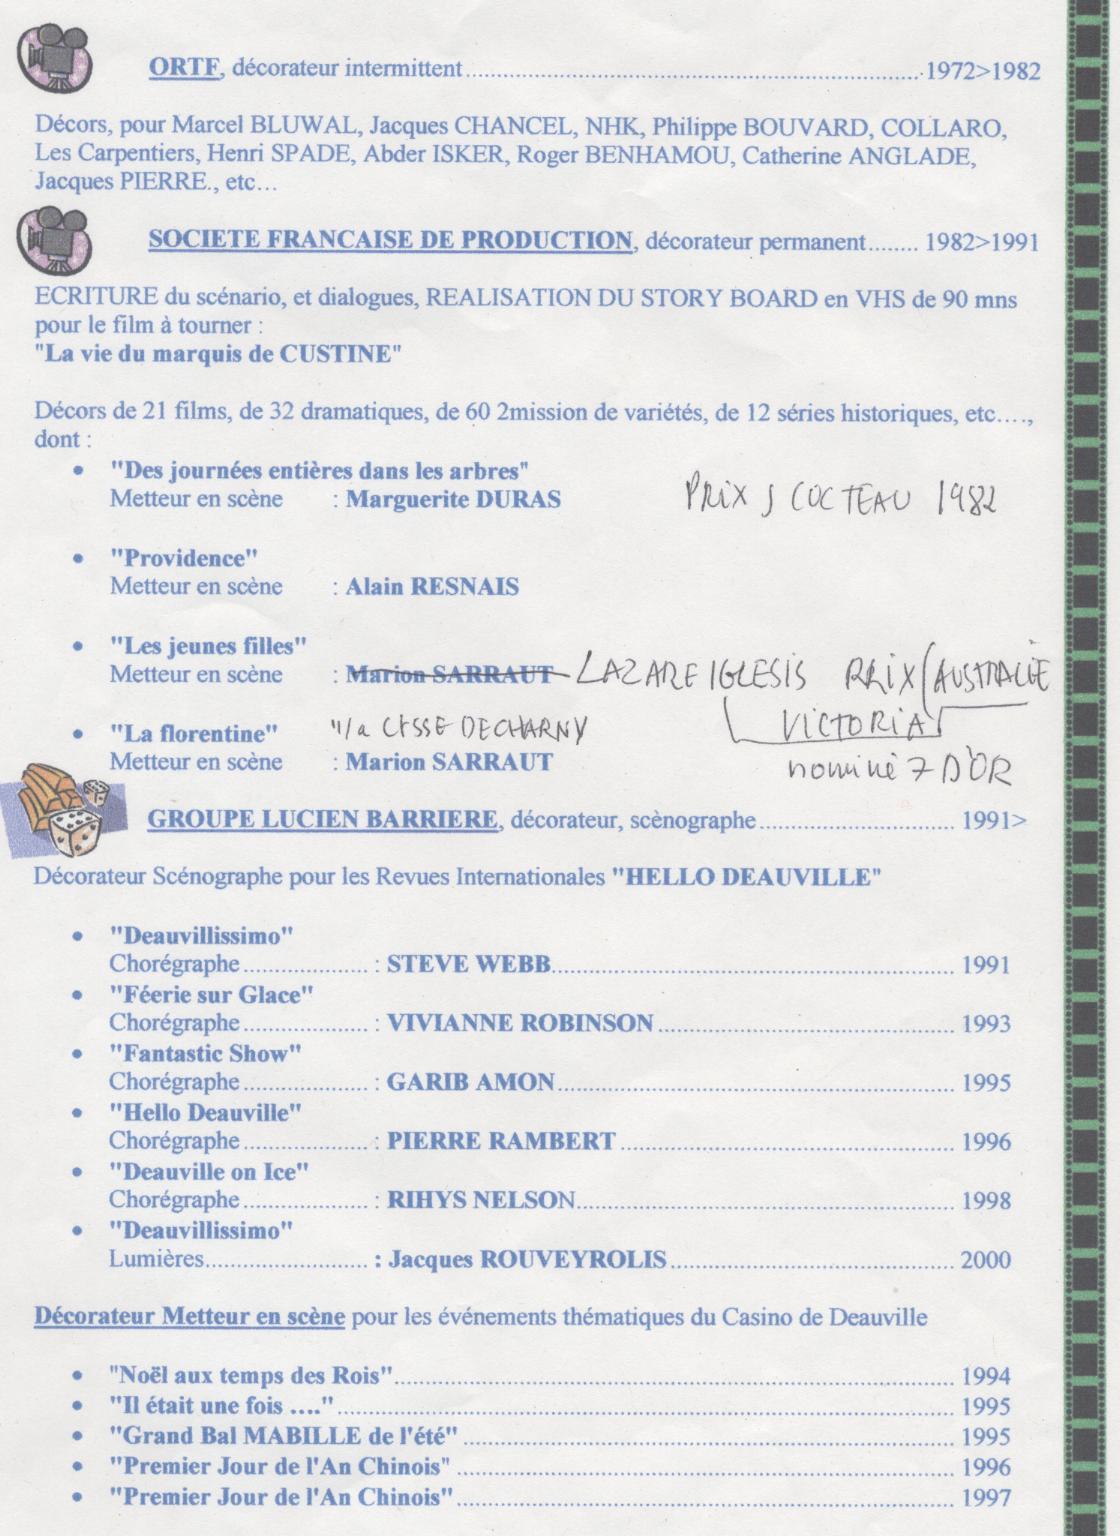 ORTF, décorateur intermittent.......................................................................... 1972>1982
Décors, pour Marcel BLUWAL, Jacques CHANCEL, NHK, Philippe BOUVARD, COLLARO,
Les Carpentiers, Henri SPADE, Abder ISKER, Roger BENHAMOU, Catherine ANGLADE,
Jacques PIERRE., etc…
SOCIETE FRANCAISE DE PRODUCTION, décorateur permanent........ 1982>1991
ECRITURE du scénario, et dialogues, REALISATION DU STORY BOARD en VHS de 90 mns
pour le film à tourner :
"La vie du marquis de CUSTINE"
Décors de 21 films, de 32 dramatiques, de 60 2mission de variétés, de 12 séries historiques, etc….,
dont :
• "Des journées entières dans les arbres"
Metteur en scène : Marguerite DURAS PRIX J COCTEAU 1982
• "Providence"
Metteur en scène : Alain RESNAIS
• "Les jeunes filles"
Metteur en scène : Marion SARRAUT LAZARE IGLESIS PRIX AUSTRALIE
VICTORIA
• "La florentine" "/a CTSSE DE CHARNY
Metteur en scène : Marion SARRAUT nominé 7 D'OR
GROUPE LUCIEN BARRIERE, décorateur, scènographe................................ 1991>
Décorateur Scénographe pour les Revues Internationales "HELLO DEAUVILLE"
• "Deauvillissimo"
Chorégraphe.................... : STEVE WEBB.................................................................. 1991
• "Féerie sur Glace"
Chorégraphe.................... : VIVIANNE ROBINSON................................................ 1993
• "Fantastic Show"
Chorégraphe.................... : GARIB AMON................................................................. 1995
• "Hello Deauville"
Chorégraphe.................... : PIERRE RAMBERT....................................................... 1996
• "Deauville on Ice"
Chorégraphe.................... : RIHYS NELSON.............................................................. 1998
• "Deauvillissimo"
Lumières.......................... : Jacques ROUVEYROLIS.............................................. 2000
Décorateur Metteur en scène pour les événements thématiques du Casino de Deauville
• "Noël aux temps des Rois"............................................................................................ 1994
• "Il était une fois …."...................................................................................................... 1995
• "Grand Bal MABILLE de l'été"................................................................................ 1995
• "Premier Jour de l'An Chinois"................................................................................. 1996
• "Premier Jour de l'An Chinois"................................................................................. 1997